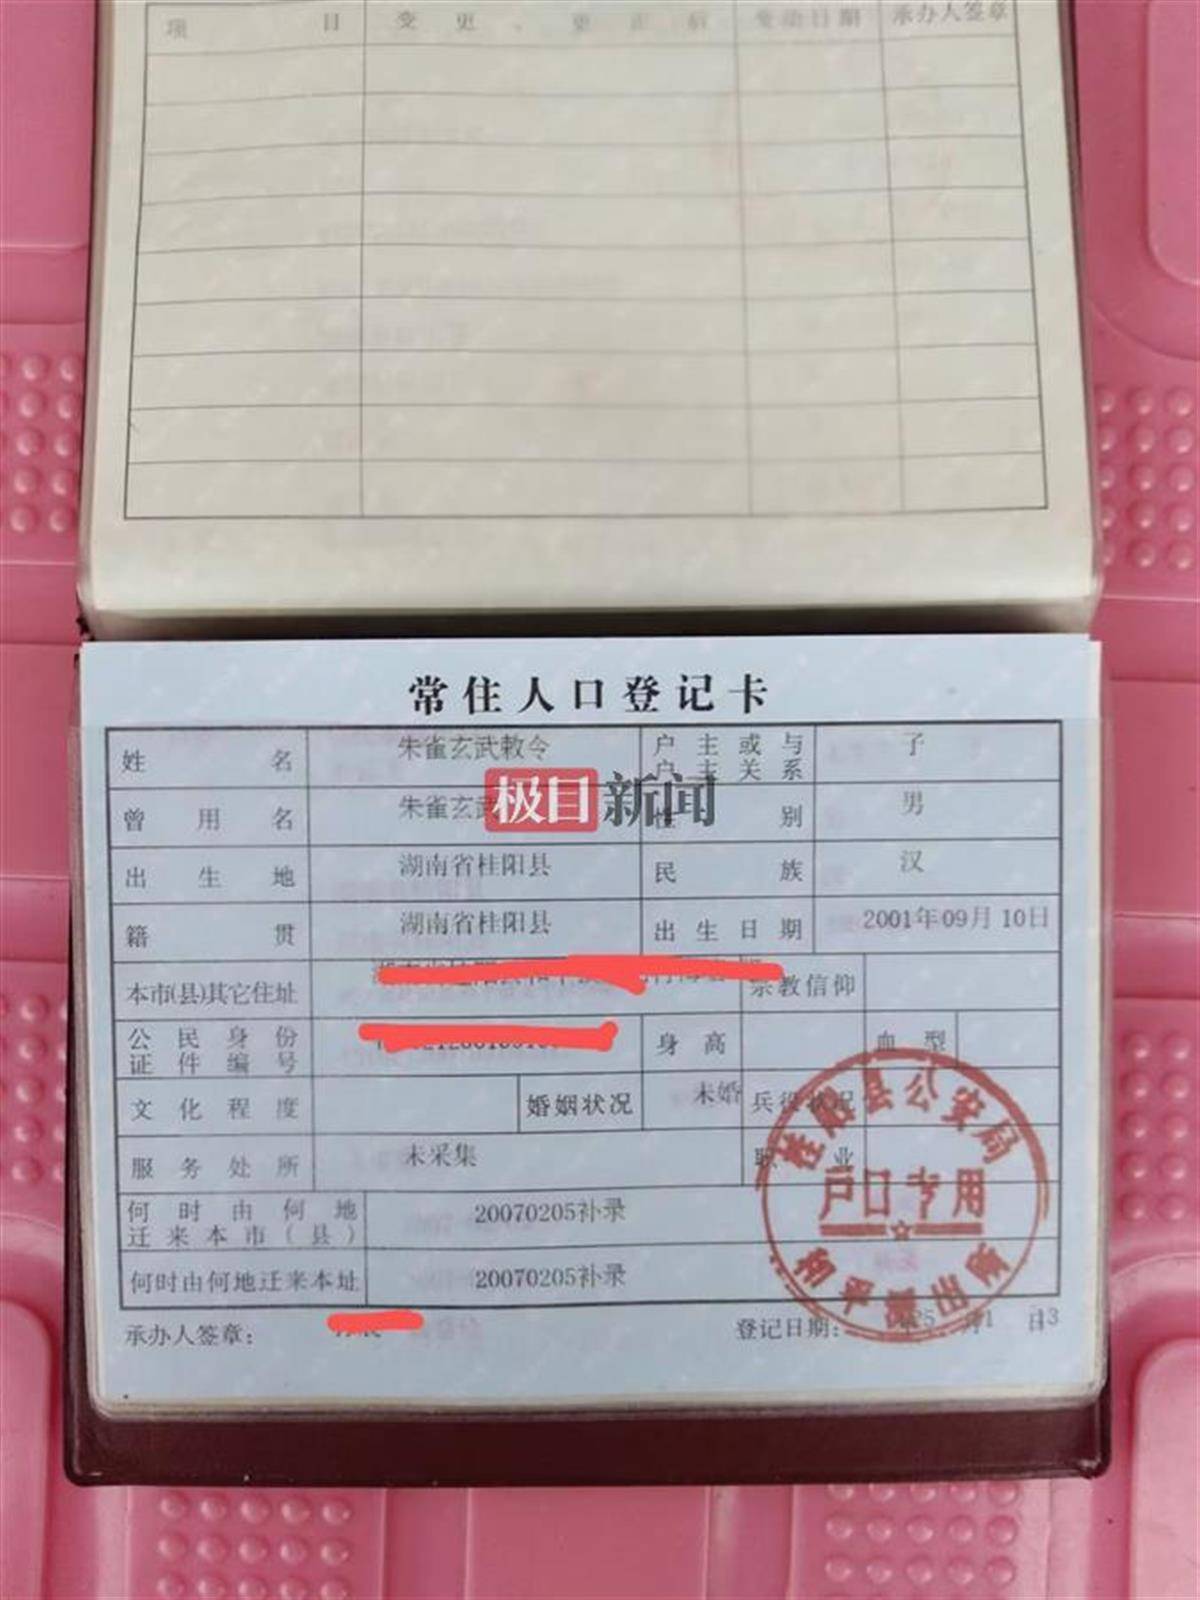 项 目 变 更 、 更 正 后 变动日期 承办人签章
常住人口登记卡
姓 名 朱雀玄武敕令 户主或与户主关系 子
曾 用 名 朱雀玄武 性 别 男
极目新闻
出 生 地 湖南省桂阳县 民 族 汉
籍 贯 湖南省桂阳县 出生日期 2001年09月10日
本市(县)其它住址 宗教信仰
公民身份证件编号 身高 血型
文化程度 婚姻状况 未婚 兵役状况
服务处所 未采集 职业
何时由何地迁来本市(县) 20070205补录
何时由何地迁来本址 20070205补录
承办人签章: 登记日期: 年 月 日
桂阳县公安局
户口专用
和平派出所